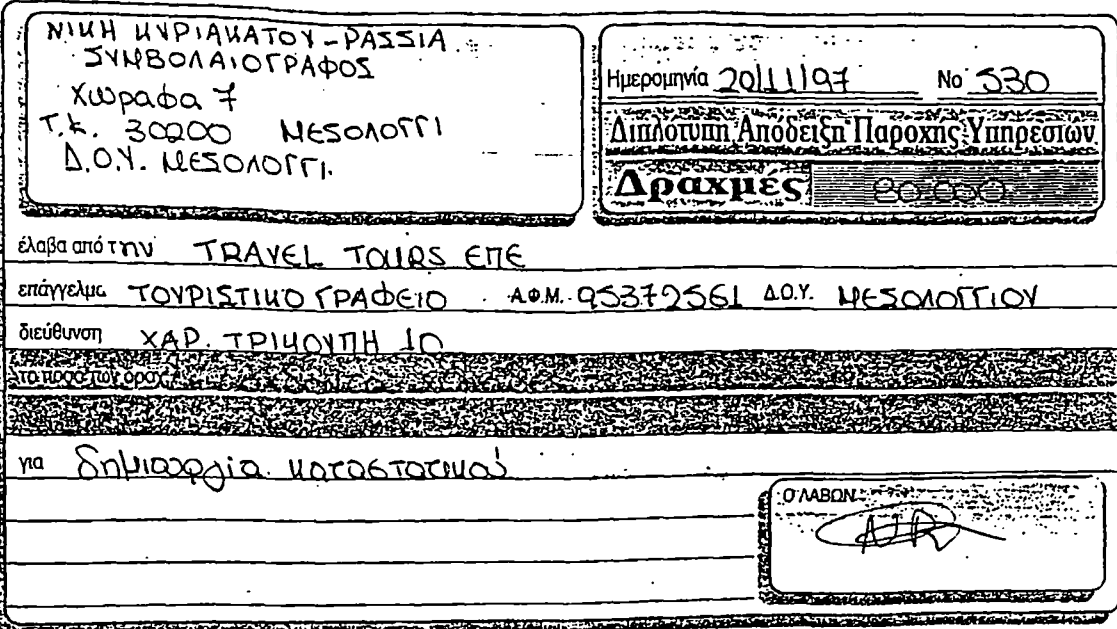 ΝΙΚΗ ΚΥΡΙΑΚΑΤΟΥ-ΡΑΣΣΙΑ
ΣΥΜΒΟΛΑΙΟΓΡΑΦΟΣ
Χωραφα 7
Τ.Κ. 30200 ΜΕΣΟΛΟΓΓΙ
Δ.Ο.Υ. ΜΕΣΟΛΟΓΓΙ.
Ημερομηνία 20/11/97 Νο 530
Διπλότυπη Απόδειξη Παροχης Υπηρεσιών
Δραχμές 80.000
έλαβα από την TRAVEL TOURS ΕΠΕ
επάγγελμα ΤΟΥΡΙΣΤΙΚΟ ΓΡΑΦΕΙΟ Α.Φ.Μ. 95372561 Δ.Ο.Υ. ΜΕΣΟΛΟΓΓΙΟΥ
διεύθυνση ΧΑΡ. ΤΡΙΚΟΥΠΗ 10
το ποσό των δραχ.
για δημιουργία καταστατικού
Ο ΛΑΒΩΝ